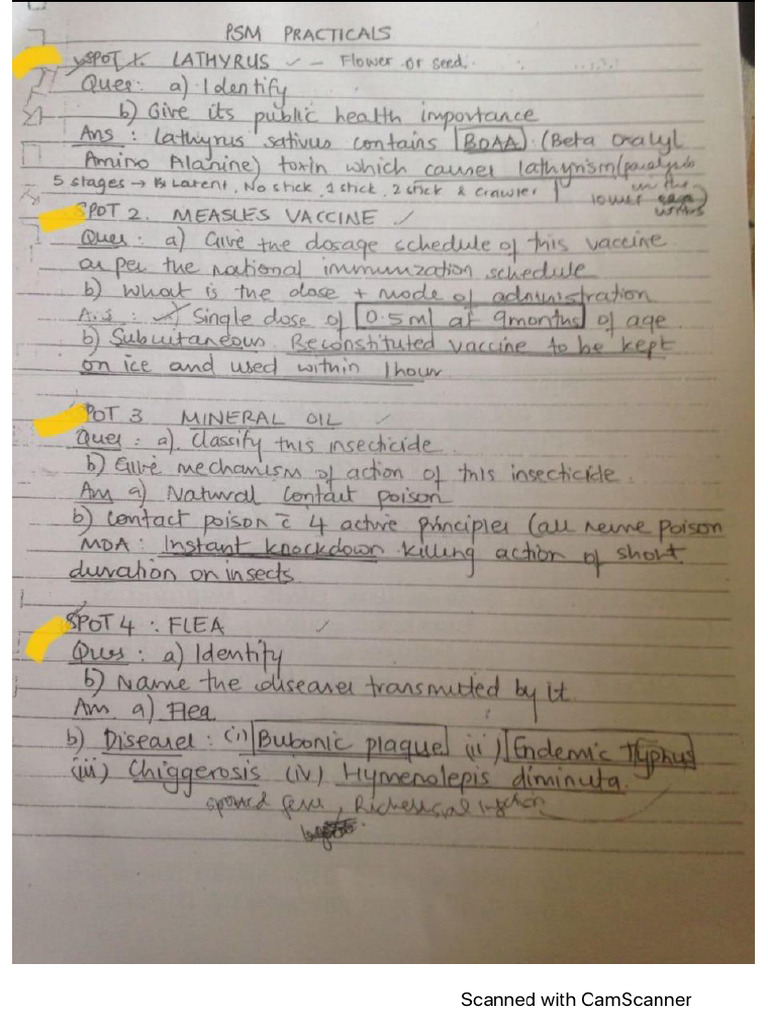 PSM PRACTICALS
SPOT 1. LATHYRUS ✓ - Flower or seed.
Ques: a) Identify
b) Give its public health importance
Ans: Lathyrus sativus contains BOAA (Beta Oxalyl
Amino Alanine) toxin which causes lathyrism (paralysis
5 stages → Latent, No stick, 1 stick, 2 stick & crawler
in the
lower
SPOT 2. MEASLES VACCINE ✓
Ques: a) Give the dosage schedule of this vaccine
as per the national immunization schedule
b) What is the dose + mode of administration
a) Single dose of 0.5ml at 9months of age
b) Subcutaneous. Reconstituted vaccine to be kept
on ice and used within 1hour
SPOT 3 MINERAL OIL ✓
Ques: a). Classify this insecticide
b) Give mechanism of action of this insecticide.
Ans a) Natural Contact poison
b) Contact poison c̄ 4 active principles (all nerve poison
MOA: Instant knockdown killing action of short
duration on insects
SPOT 4: FLEA ✓
Ques: a) Identify
b) Name the diseases transmitted by it.
Ans. a) Flea
b) Diseases: (i) Bubonic plaque (ii) Endemic Typhus
(iii) Chiggerosis (iv) Hymenolepis diminuta.
Scanned with CamScanner